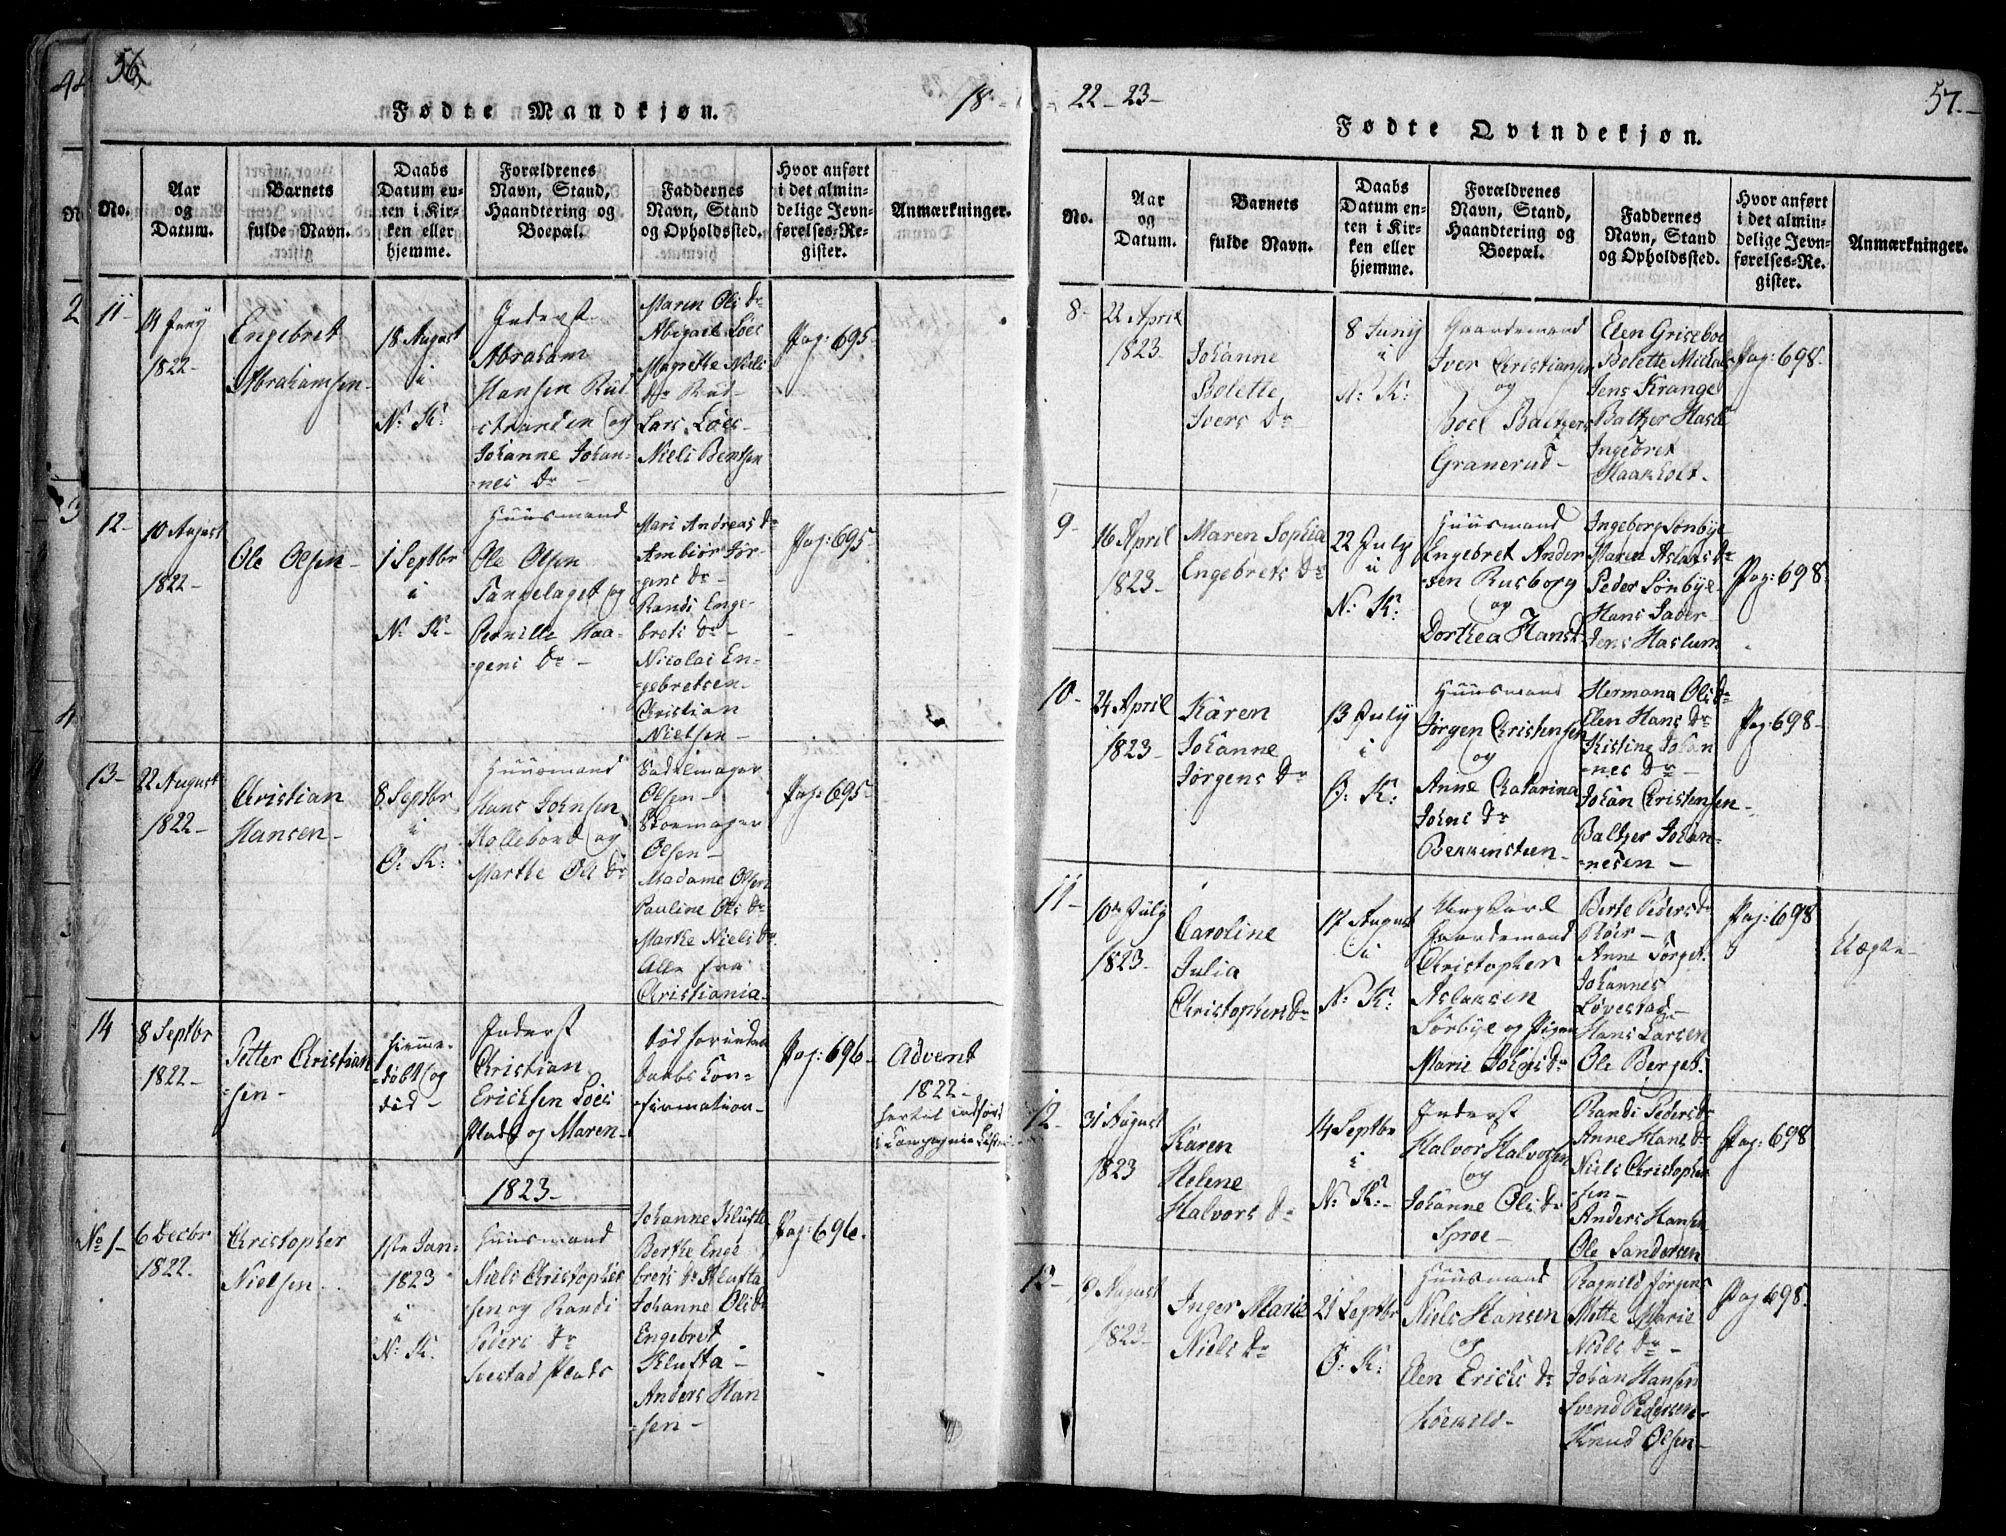 56.
18
Fødte Mandkjøn.
No.
Aar
og
Datum.
Barnets
fulde Navn.
Daabs
Datum en-
ten i Kir-
ken eller
hjemme.
Forældrenes
Navn, Stand,
Haandtering og
Boepæl.
Faddernes
Navn, Stand
og Opholdssted.
Hvor anført
i det almin-
delige Jevn-
førelses-Re-
gister.
Anmærkninger.
11
1822-
Engebret
Abrahamsen-
18 August
i
N: K:
Inderst
Abraham
Hansen Rud
stranden og
Johanne Johan-
nes Dr-
Maren Olis Dr
Abigael Löes
Magrethe Niels
Dr Rud-
Lars Löes-
Niels Bentsen
Pag: 695-
12-
10 August
1822-
Ole Olsen-
1 Septbr
i
N: K-
Huusmand
Ole Olsen
Tangelaget og
Pernille Haa-
gens Dr-
Mari Andreas Dr
Ambiör Jör-
gens Dr-
Randi Enge-
brets Dr-
Nicolai En-
gebretsen-
Christian
Nielsen-
Pag: 695
13-
22 August
1822-
Christian
Hansen-
8 Septbr
i
O: K:
Huusmand
Hans Johnsen
Kollebond og
Marthe Olis Dr
Sadelmager
Olsen-
Skoemager
Olsen-
Madame Olsen
Pauline Olis Dr
Marthe Niels Dr
Alle fra
Christiania-
Pag: 695-
14
8 Septbr
1822-
Petter Christian
sen-
hjemme-
döbt og
död-
Inderst
Christian
Ericksen Löes
Plads og Maren-
död forinden
Daabs Con-
firmation-
Pag: 696-
Advent
1822-
1823-
No 1-
6 Decbr
1822-
Christopher
Nielsen
1ste Jan-
1823
i
N: K.
Huusmand
Niels Christopher
sen og Randi
Peders Dr
Svestad Plads
Johanne Klufte
Berthe Enge
brets Dr Klufta
Johanne Olis Dr
Engebret
Klufta-
Anders Han
sen-
Pag: 696-
22-23-
57.-
Fødte Qvindekjøn.
No.
Aar
og
Datum.
Barnets
fulde Navn.
Daabs
Datum en-
ten i Kir-
ken eller
hjemme.
Forældrenes
Navn, Stand,
Haandtering og
Boepæl.
Faddernes
Navn, Stand
og Opholdssted.
Hvor anført
i det almin-
delige Jevn-
førelses-Re-
gister.
Anmærkninger.
8-
22 April
1823-
Johanne
Bolette
Ivers Dr-
8 Juny
i
N: K:
Gaardemand
Iver Christiansen
og
Boel Baltzers
Granerud-
Elen Griseboe
Bolette
Jens Krange
Baltzer Hasle
Ingebret
Haakholt-
Pag: 698-
9-
16 April
1823-
Maren Sophia
Engebrets Dr
22 July
i
N: K:
Huusmand
Engebret Ander
sen Rusborg
og
Dorthea Hans D
Ingeborg Sönbye
Maren Aslaks Dr
Peder Sönbye
Hans Sader
Jens Haslum
Pag: 698-
10-
24 April
1823-
Karen
Johanne
Jörgens Dr
13 July
i
O: K:
Huusmand
Jörgen Christensen
og
Anne Chatarina
Johns Dr
Bekkensteen-
Hermana Olis Dr
Elen Hans Dr
Kistine Johan
nes Dr-
Johan Christensen-
Baltzer Johan-
nesen-
Pag: 698-
11-
10de July
1823-
Caroline
Julia
Christophers Dr
17 August
i
N: K:
Ungkarl
Gaardemand
Christopher
Aslaksen
Sörbye og Pigen
Marie Johns Dr
Berte Peders Dr
Röer-
Anne Torget
Johannes
Lövestad-
Hans Larsen
Ole Berget-
Pag: 698
Uægte-
12-
31 August
1823
Karen
Helene
Halvors Dr
14 Septbr
i
N: K:-
Inderst
Halvor Halvorsen
og
Johanne Olis Dr
Sproe-
Randi Peders Dr
Anne Hans Dr
Niels Christopher
sen-
Anders Hansen
Ole Sandersen
Pag: 698
13-
9 August
1823-
Inger Marie
Niels Dr
21 Septbr
i
O: K:
Huusmand
Niels Hansen
og
Elen Erichs Dr
Ragnild Jörgens
Mette Marie
Niels Dr-
Johan Hansen
Svend Pedersen-
Knud Olsen-
Pag 698.